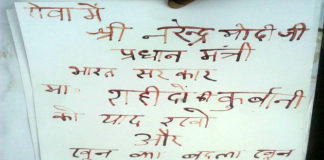 सेवा में
श्री नरेन्द्र मोदी जी
प्रधान मंत्री
भारत सरकार
मा. शहीदों की कुर्बानी
को याद रखो
और
खून का बदला खून